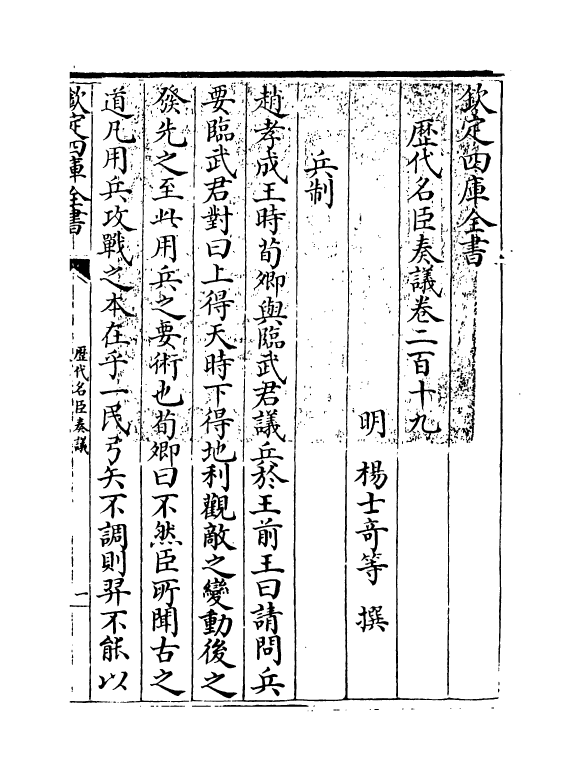 欽定四庫全書
歷代名臣奏議卷二百十九
明 楊士奇等 撰
兵制
趙孝成王時荀卿與臨武君議兵於王前王曰請問兵
要臨武君對曰上得天時下得地利觀敵之變動後之
發先之至此用兵之要術也荀卿曰不然臣所聞古之
道凡用兵攻戰之本在乎一民弓矢不調則羿不能以
欽定四庫全書
歷代名臣奏議
一